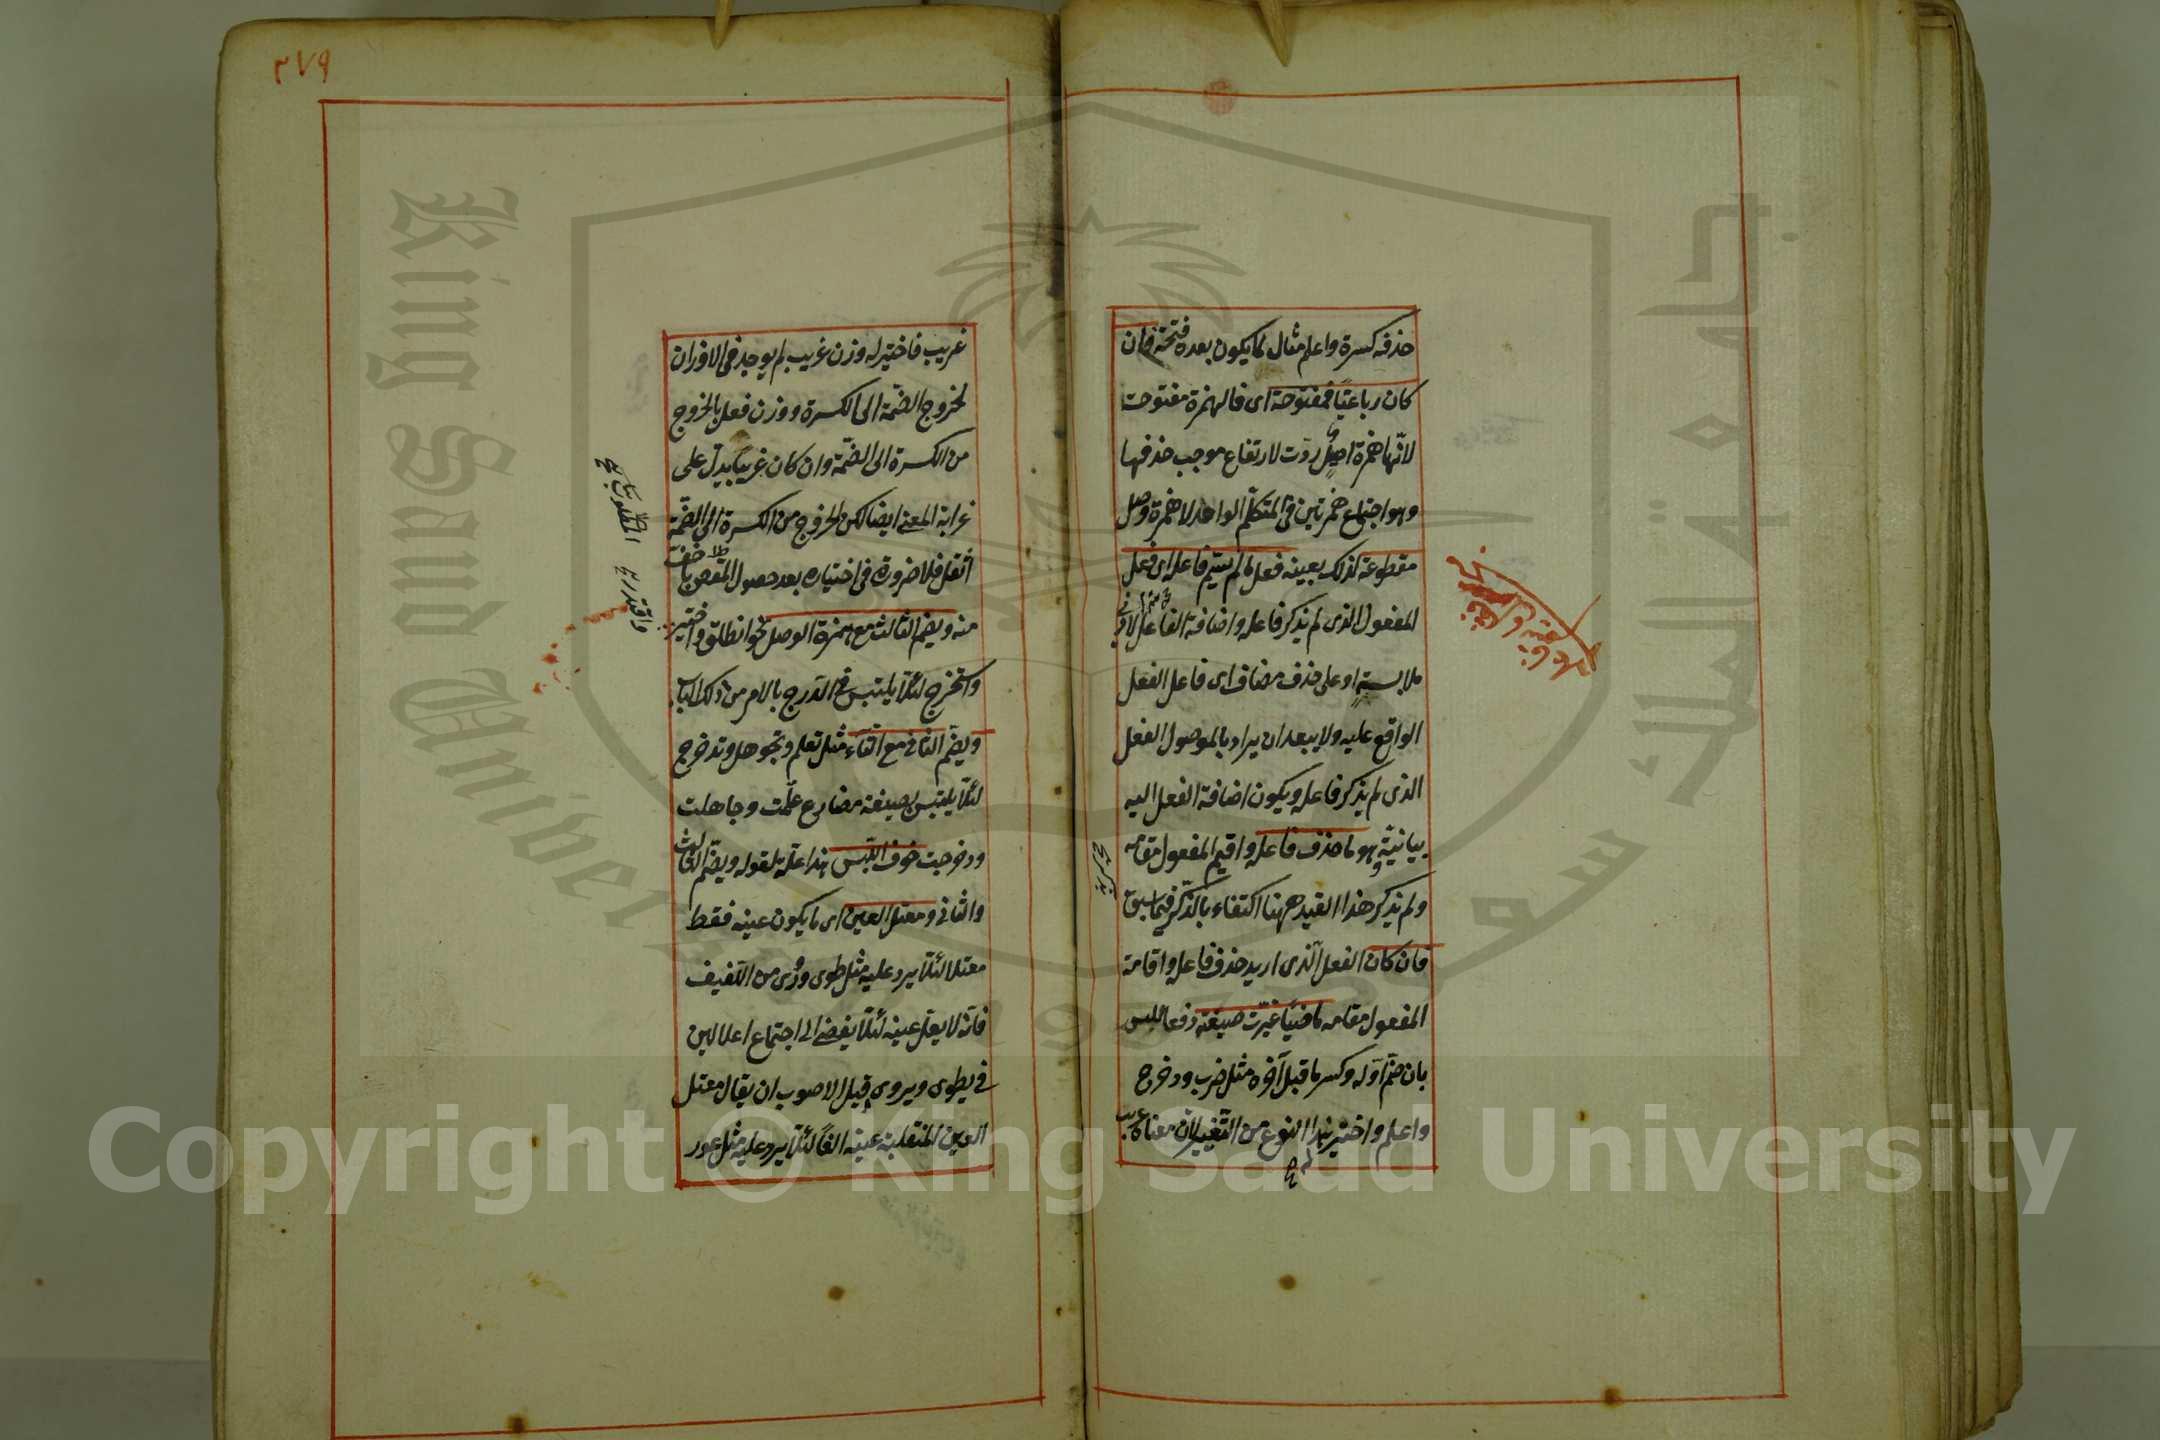 حذفه كسرة واعلم مثال لما يكون بعده فتحة فان
كان رباعيّا فمفتوحة اى فالهمزة مفتوحة
لانّها همزة اصل ردّت لارتفاع موجب حذفها
وهو اجتماع همزتين فى المتكلّم الواحد لا همزة وصل
مقطوعة كذلك بعينه فعل ما لم يسمّ فاعله اى فعل
المفعول الذى لم يذكر فاعله واضافة الفاعل
ملابسة او على حذف مضاف اى فاعل الفعل
الواقع عليه ولا يبعد ان يراد بالموصول الفعل
الذى لم يذكر فاعله ويكون اضافة الفعل اليه
بيانيّة وهو ما حذف فاعله واقيم المفعول مقامه
ولم يذكر هذا القيد ههنا اكتفاء بالذّكر فيما سبق
فان كان الفعل الّذى اريد حذف فاعله واقامة
المفعول مقامه ماضيا غيّرت صيغته دفعا للبس
بان ضمّ اوّله وكسر ما قبل آخره مثل ضرب ودحرج
واعلم واختير هذا النوع من التّغيير لانّ معناه
٢٧٩
غريب فاختير له وزن غريب لم يوجد فى الاوزان
لخروج الضمّة الى الكسرة ووزن فعل بالخروج
من الكسرة الى الضمّة وان كان غريبا يدلّ على
غرابة المعنى ايضا لكن الخروج من الكسرة الى الضمّة
اثقل فلا ضرورة فى اختياره بعد حصول المقصود باخفّ
منه ويضم الثالث مع همزة الوصل نحو انطلق واختير
واستخرج لئلّا يلتبس فى الدّرج بالامر من ذلك الباب
ويضم الثانى مع التّاء مثل تعلم وتجوهل وتدحرج
لئلّا يلتبس بصيغة مضارع علّمت وجاهلت
ودحرجت خوف اللّبس هذا علّة لقوله ويضم الثالث
والثانى ومعتل العين اى ما يكون عينه فقط
معتلا لئلّا يرد عليه مثل طوى وروى من اللّفيف
فانّه لا يعلّ عينه لئلّا يفضى الى اجتماع اعلالين
فى يطوى ويروى قيل الاصوب ان يقال معتل
العين المنقلبة عينه الفا لئلّا يرد عليه مثل عور